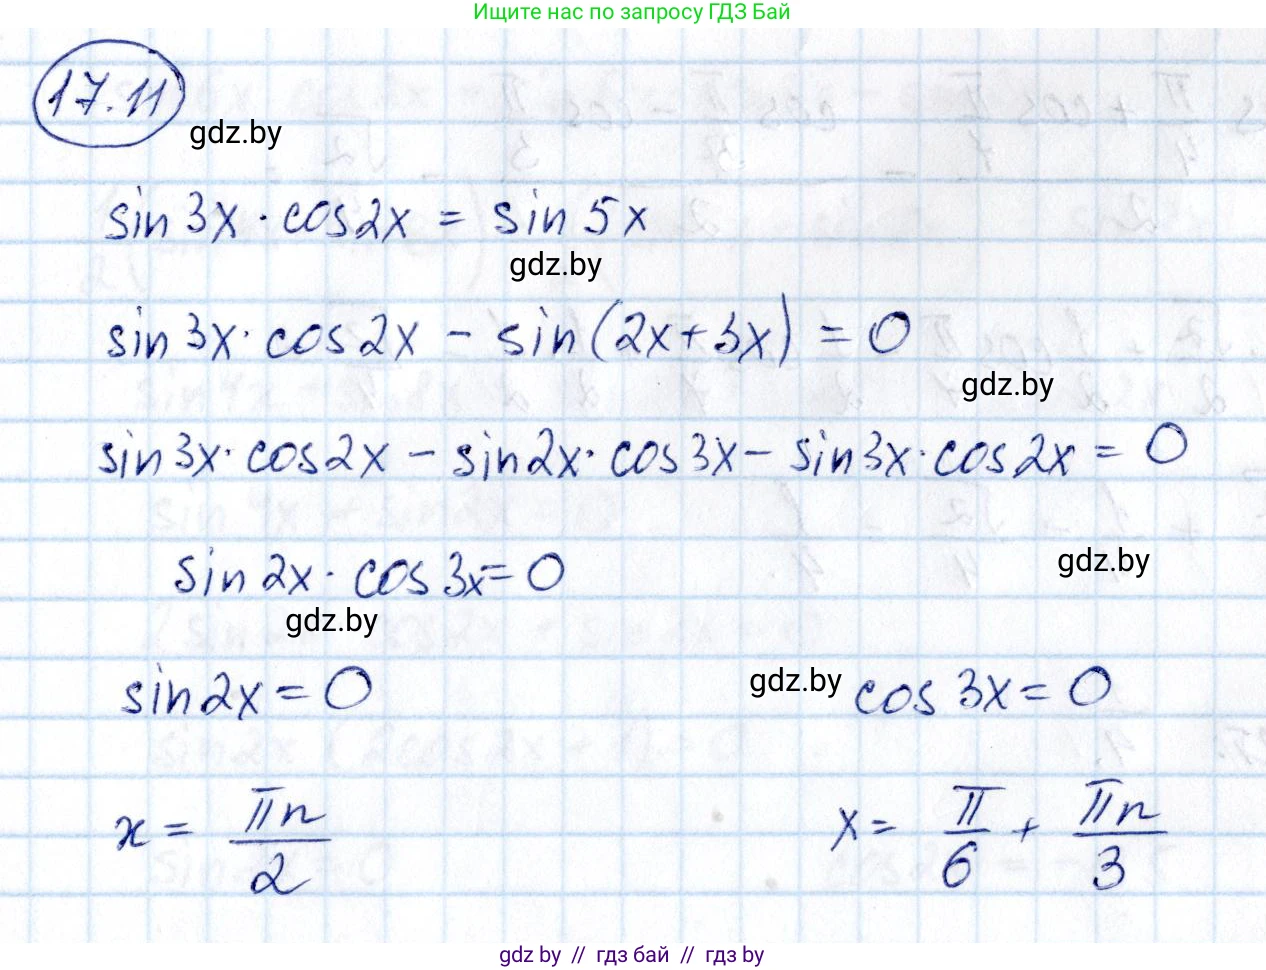 Ищите нас по запросу ГДЗ Бай
17.11
gdz.by
sin 3x · cos 2x = sin 5x
gdz.by
sin 3x · cos 2x - sin(2x+3x) = 0
gdz.by
sin 3x · cos 2x - sin 2x · cos 3x - sin 3x · cos 2x = 0
sin 2x · cos 3x = 0
gdz.by
gdz.by
sin 2x = 0
gdz.by
cos 3x = 0
x = πn/2
x = π/6 + πn/3
gdz.by // гдз бай // гдз by